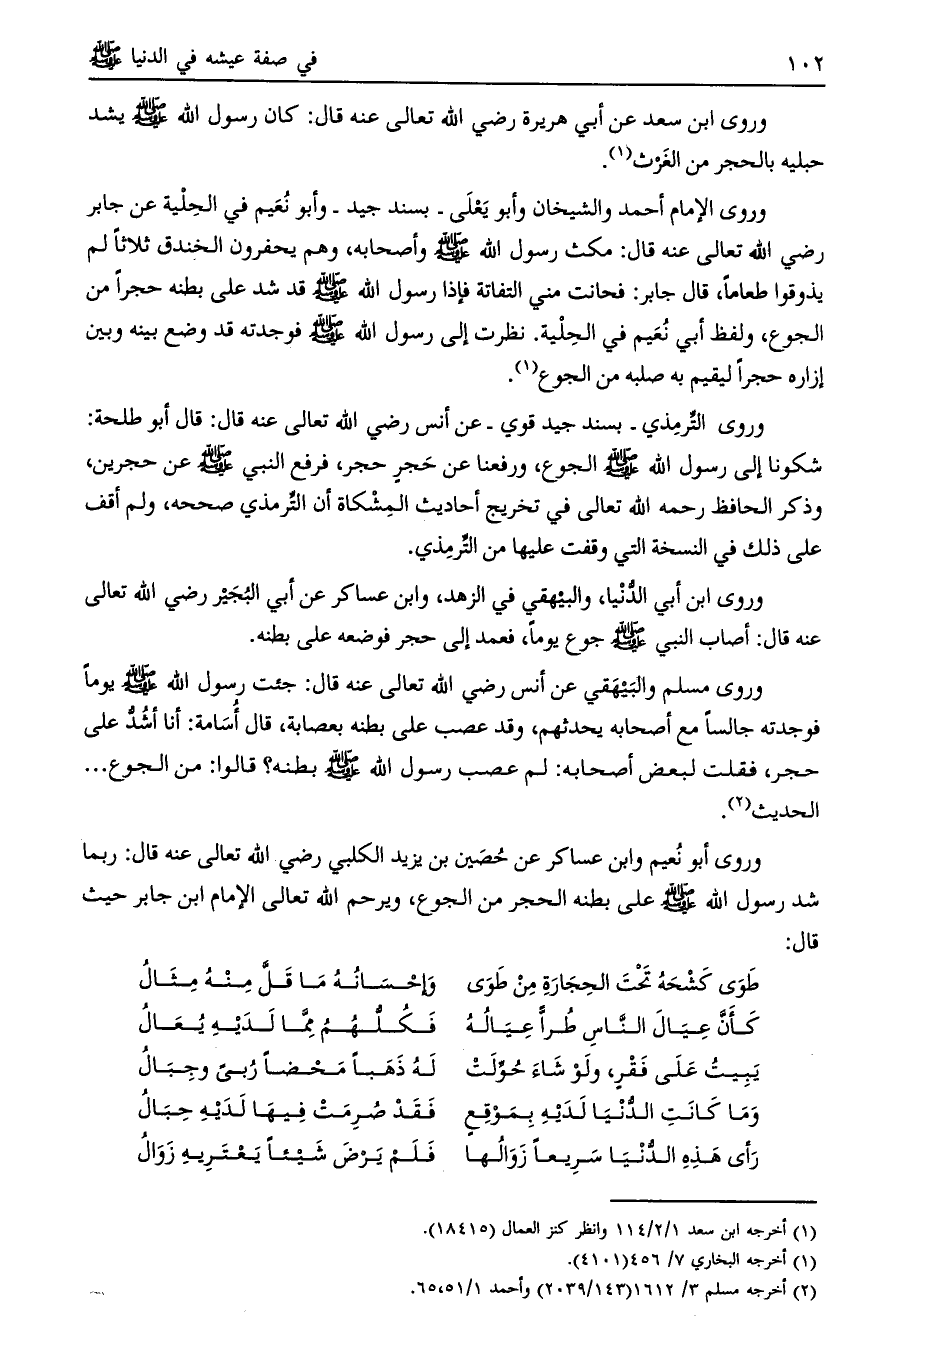 ١٠٢ في صفة عيشه في الدنيا ﷺ
وروى ابن سعد عن أبي هريرة رضي الله تعالى عنه قال: كان رسول الله ﷺ يشد
حبليه بالحجر من الغَرْث(١).
وروى الإمام أحمد والشيخان وأبو يَعْلَى ـ بسند جيد ـ وأبو نُعَيم في الحِلْية عن جابر
رضي الله تعالى عنه قال: مكث رسول الله ﷺ وأصحابه، وهم يحفرون الخندق ثلاثاً لم
يذوقوا طعاماً، قال جابر: فحانت مني التفاتة فإذا رسول الله ﷺ قد شد على بطنه حجراً من
الجوع، ولفظ أبي نُعَيم في الحِلْية. نظرت إلى رسول الله ﷺ فوجدته قد وضع بينه وبين
إزاره حجراً ليقيم به صلبه من الجوع(١).
وروى التِّرمِذي ـ بسند جيد قوي ـ عن أنس رضي الله تعالى عنه قال: قال أبو طلحة:
شكونا إلى رسول الله ﷺ الجوع، ورفعنا عن حَجرٍ حجر، فرفع النبي ﷺ عن حجرين،
وذكر الحافظ رحمه الله تعالى في تخريج أحاديث المِشْكاة أن التِّرمذي صححه، ولم أقف
على ذلك في النسخة التي وقفت عليها من التِّرمِذي.
وروى ابن أبي الدُّنْيا، والبيْهقي في الزهد، وابن عساكر عن أبي البُجَيْر رضي الله تعالى
عنه قال: أصاب النبي ﷺ جوع يوماً، فعمد إلى حجر فوضعه على بطنه.
وروى مسلم والبَيْهَقي عن أنس رضي الله تعالى عنه قال: جئت رسول الله ﷺ يوماً
فوجدته جالساً مع أصحابه يحدثهم، وقد عصب على بطنه بعصابة، قال أُسَامة: أنا أشُدُّ على
حجر، فقلت لبعض أصحابه: لم عصب رسول الله ﷺ بطنه؟ قالوا: من الجوع...
الحديث(٢).
وروى أبو نُعيم وابن عساكر عن حُصَين بن يزيد الكلبي رضي الله تعالى عنه قال: ربما
شد رسول الله ﷺ على بطنه الحجر من الجوع، ويرحم الله تعالى الإمام ابن جابر حيث
قال:
طَوَى كَشْحَهُ تَحْتَ الحِجَارَةِ مِنْ طَوَى وَإِحْسَانُهُ مَا قَلَّ مِنْهُ مِثَالُ
كَأَنَّ عِيَالَ النَّاسِ طُراً عِيَالُهُ فَكُلُّهُمُ مِمَّا لَدَيْهِ يُعَالُ
يَبِيتُ عَلَى فَقْرٍ، ولَوْ شَاءَ حُوِّلَتْ لَهُ ذَهَباً مَحْضاً رُبىً وجِبَالُ
وَمَا كَانَتِ الدُّنْيَا لَدَيْهِ بِمَوْقِعٍ فَقَدْ صُرِمَتْ فِيهَا لَدَيْهِ حِبَالُ
رَأى هَذِهِ الدُّنْيَا سَرِيعاً زَوَالُها فَلَمْ يَرْضَ شَيْئاً يَعْتَرِيهِ زَوَالُ
(١) أخرجه ابن سعد ١١٤/٢/١ وانظر كنز العمال (١٨٤١٥).
(١) أخرجه البخاري ٧/ ٤٥٦(٤١٠١).
(٢) أخرجه مسلم ٣/ ١٦١٢(٢٠٣٩/١٤٣) وأحمد ٦٥،٥١/١.